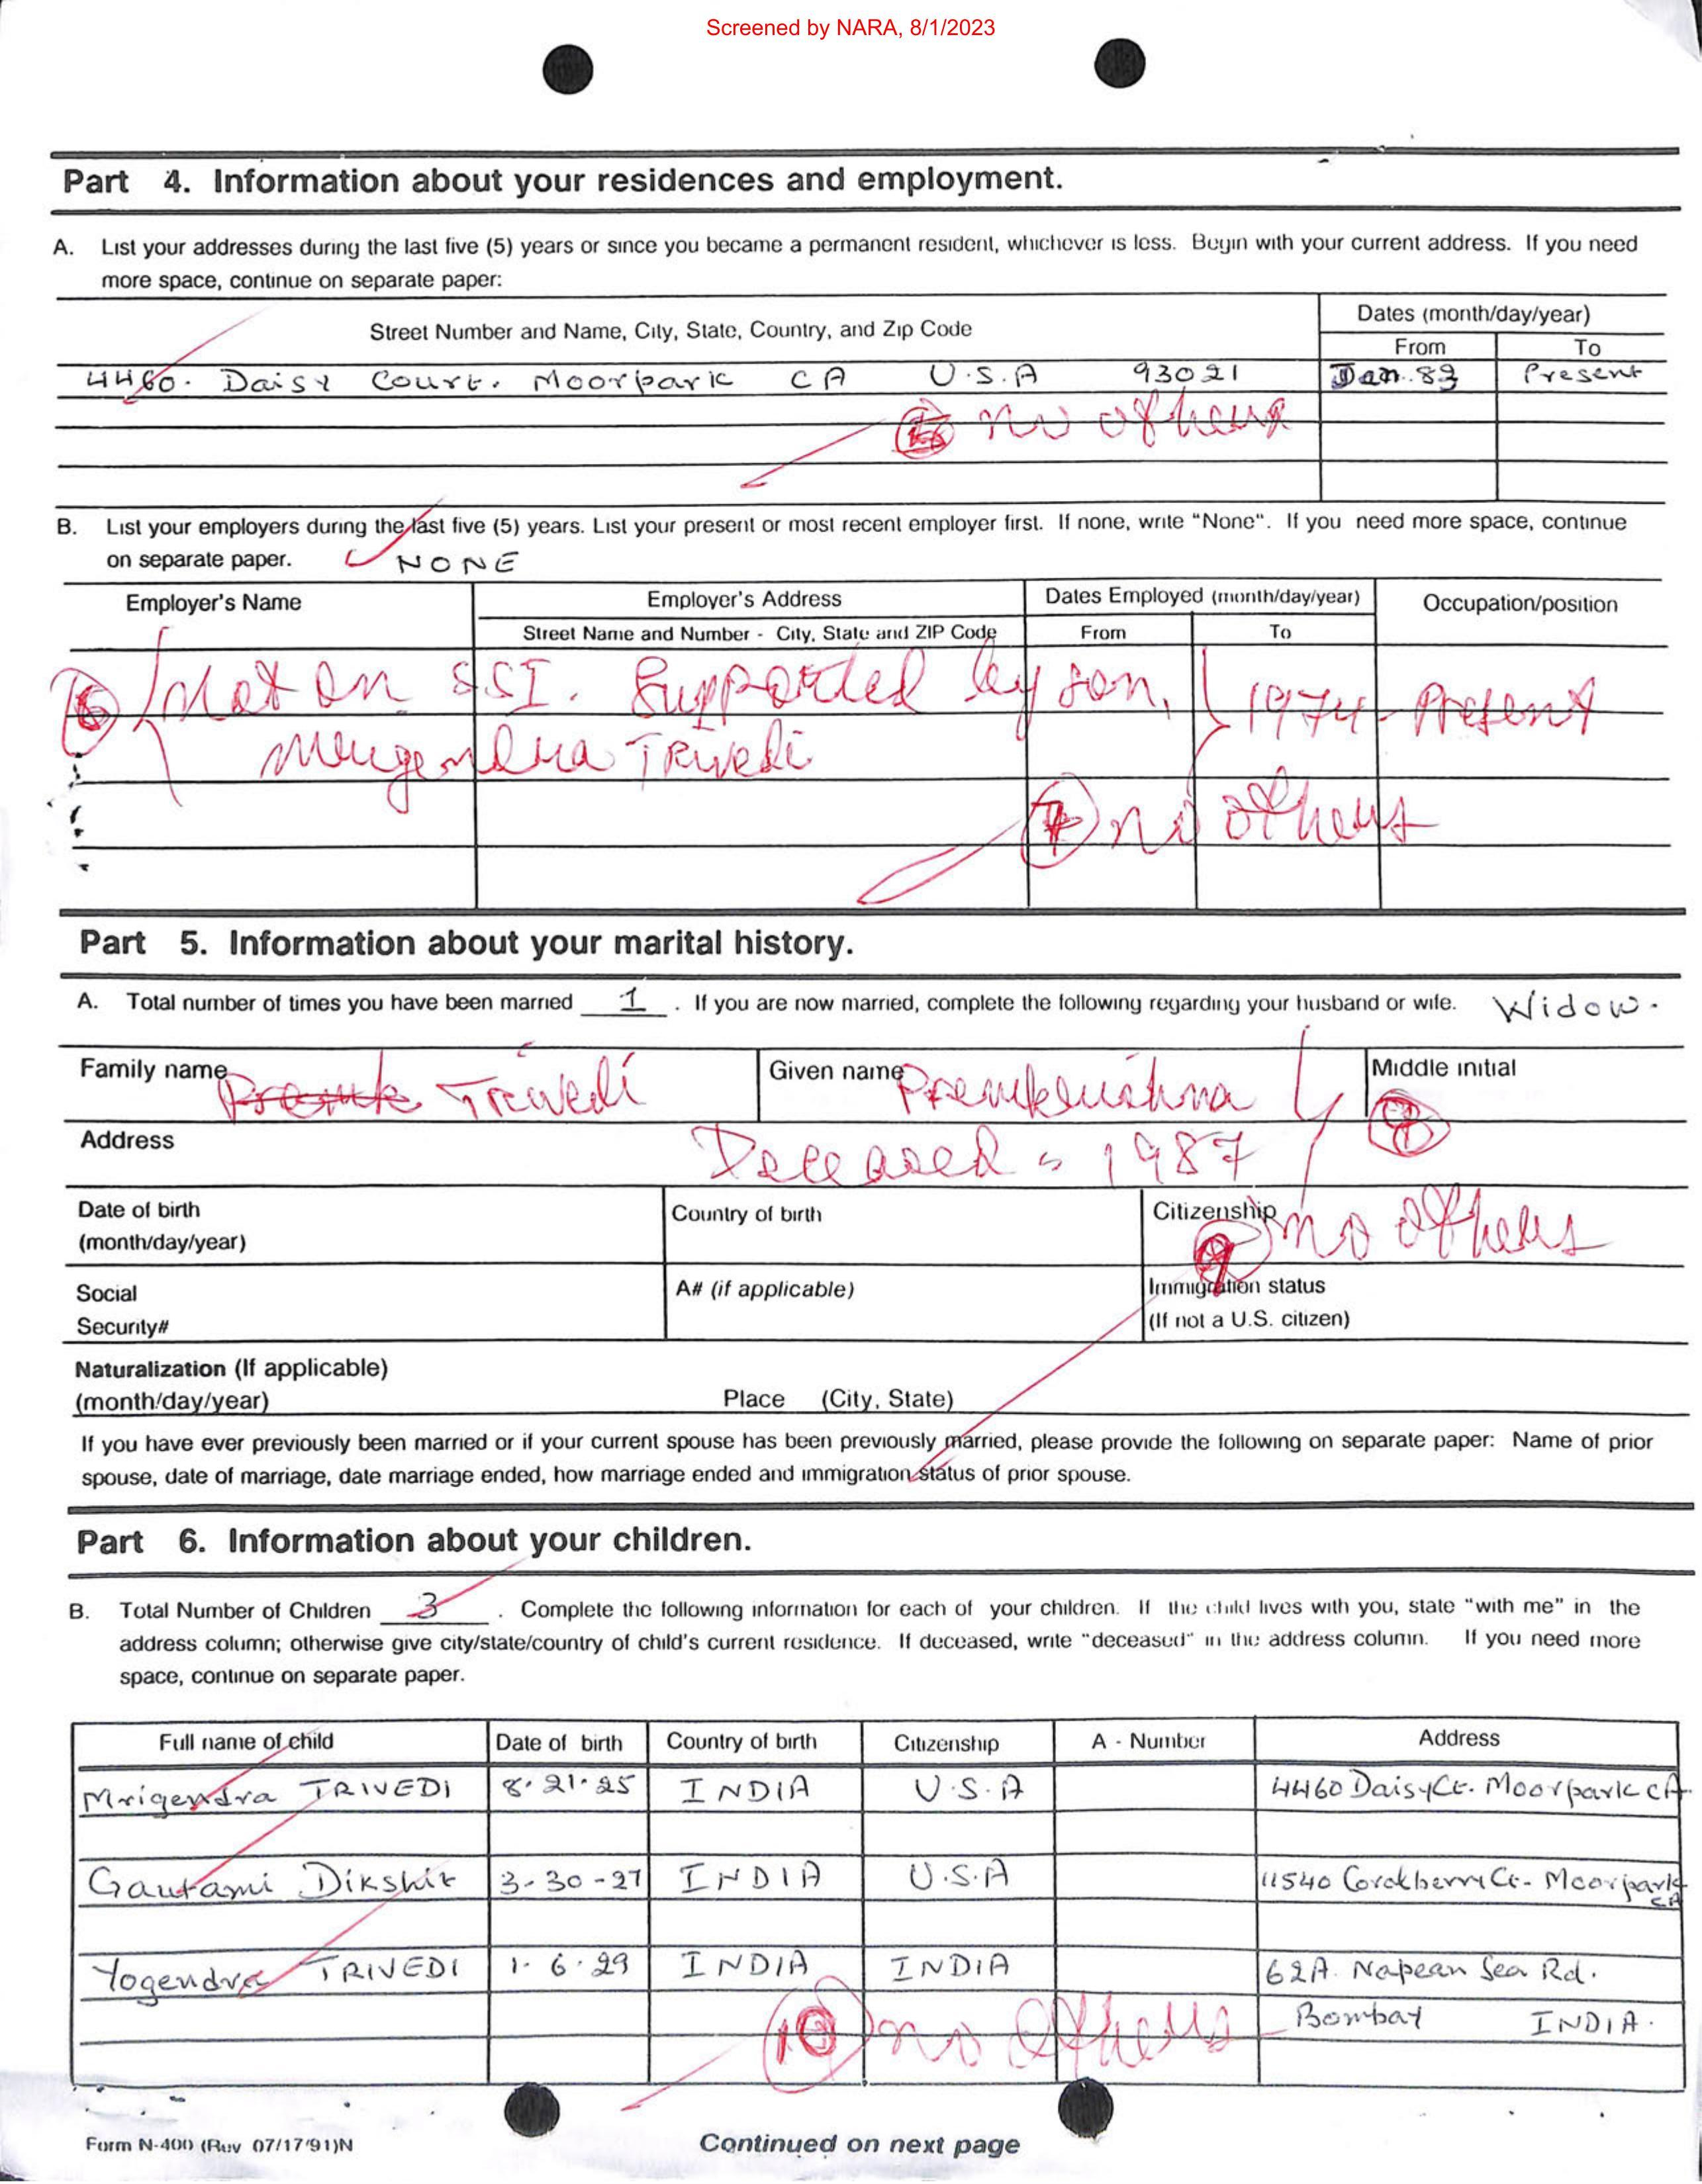 Screened by NARA, 8/1/2023
Part 4. Information about your residences and employment.
A. List your addresses during the last five (5) years or since you became a permanent resident, whichever is less. Begin with your current address. If you need
more space, continue on separate paper:
Street Number and Name, City, State, Country, and Zip Code
Dates (month/day/year)
From To
4460. Daisy Court. Moorpark CA U.S.A 93021 Jan. 83 Present
no others
B. List your employers during the last five (5) years. List your present or most recent employer first. If none, write "None". If you need more space, continue
on separate paper. NONE
Employer's Name Employer's Address Dates Employed (month/day/year) Occupation/position
Street Name and Number - City, State and ZIP Code From To
6 Not on SSI. Supported by son, 1974 - Present
Mrugendra Trivedi
7 no others
Part 5. Information about your marital history.
A. Total number of times you have been married 1 . If you are now married, complete the following regarding your husband or wife. Widow.
Family name Trivedi Given name Premkrishna Middle initial
Address Deceased - 1987
Date of birth Country of birth Citizenship no others
(month/day/year)
9
Social A# (if applicable) Immigration status
Security# (If not a U.S. citizen)
Naturalization (If applicable)
(month/day/year) Place (City, State)
If you have ever previously been married or if your current spouse has been previously married, please provide the following on separate paper: Name of prior
spouse, date of marriage, date marriage ended, how marriage ended and immigration status of prior spouse.
Part 6. Information about your children.
B. Total Number of Children 3 . Complete the following information for each of your children. If the child lives with you, state "with me" in the
address column; otherwise give city/state/country of child's current residence. If deceased, write "deceased" in the address column. If you need more
space, continue on separate paper.
Full name of child Date of birth Country of birth Citizenship A - Number Address
Mrigendra TRIVEDI 8.21.25 INDIA U.S.A 4460 Daisy Ct. Moorpark CA
Gautami Dikshit 3-30-27 INDIA U.S.A 11540 Coralberry Ct. Moorpark
CA
Yogendra TRIVEDI 1.6.29 INDIA INDIA 62A. Napean Sea Rd.
Bombay INDIA.
10 no others
Form N-400 (Rev 07/17/91)N
Continued on next page